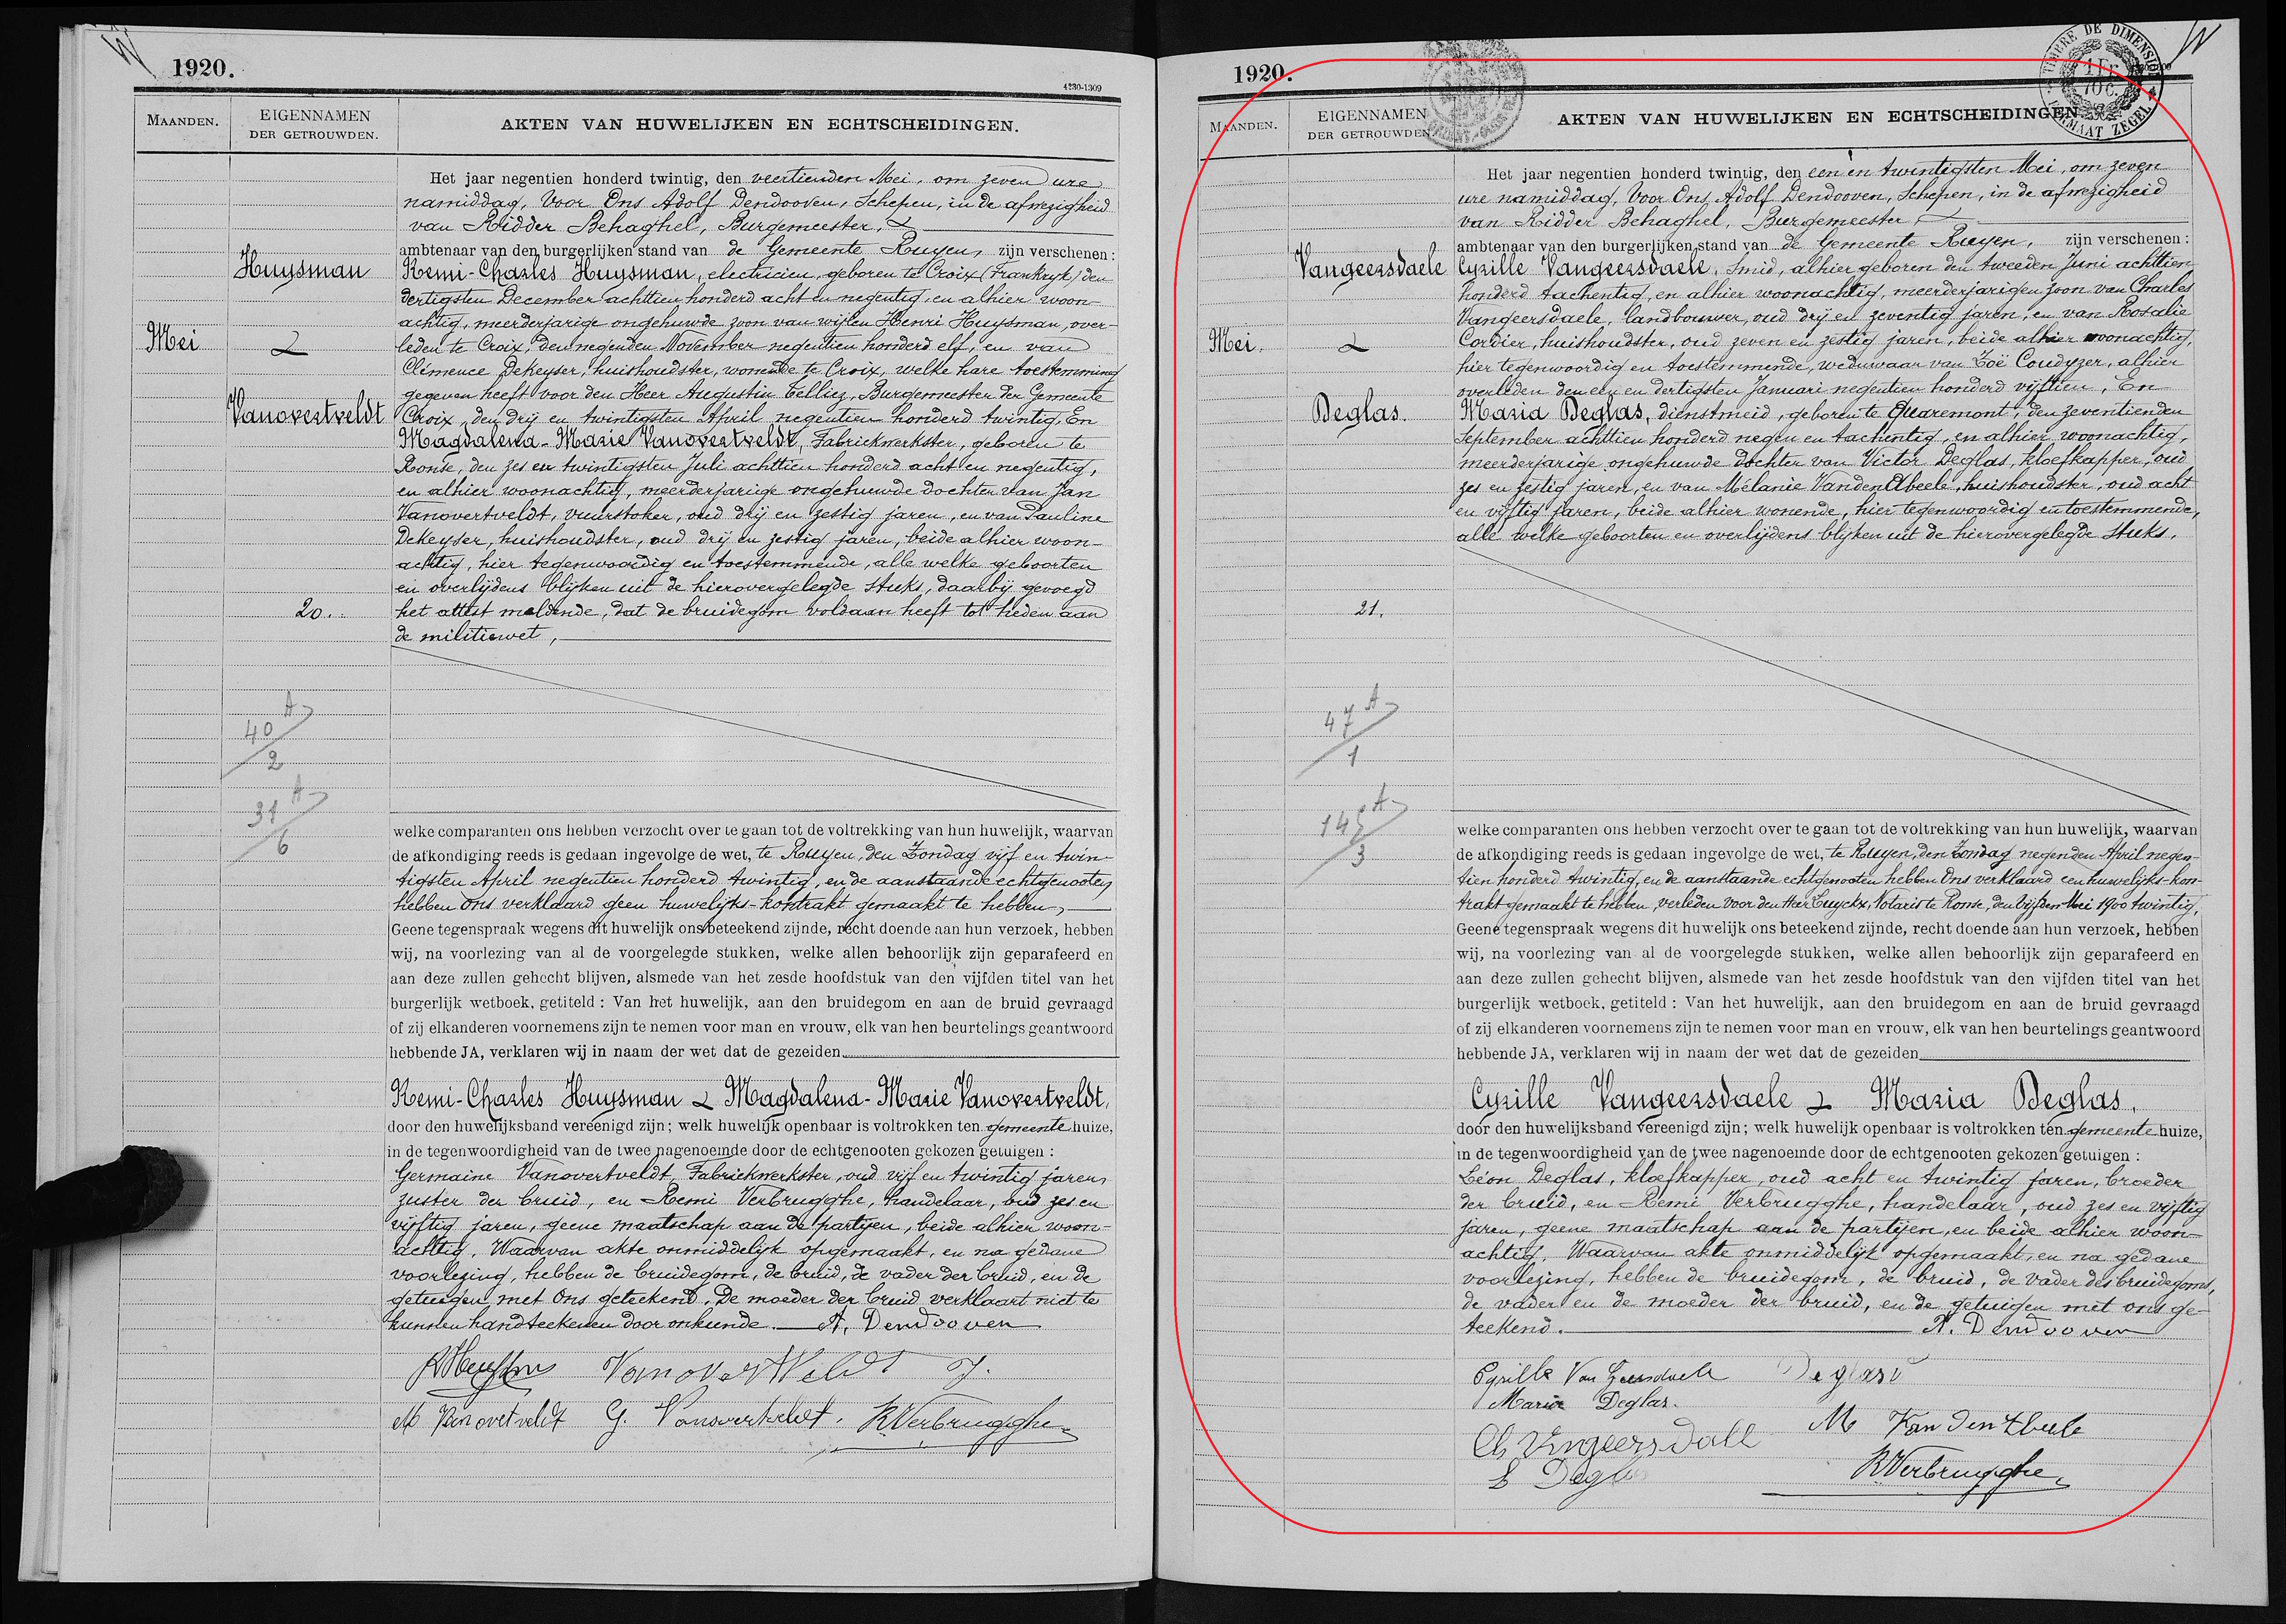 1920.
4230-1309
MAANDEN.
EIGENNAMEN
DER GETROUWDEN.
AKTEN VAN HUWELIJKEN EN ECHTSCHEIDINGEN.
Het jaar negentien honderd twintig, den veertienden Mei, om zeven ure
namiddag, Voor Ons Adolf Dendooven, Schepen, in de afwezigheid
van Ridder Behaghel, Burgemeester,
ambtenaar van den burgerlijken stand van de Gemeente Ruyen, zijn verschenen:
Huysman
Remi-Charles Huysman, electricien, geboren te Croix (Frankryk) den
dertigsten December achttien honderd acht en negentig, en alhier woon-
achtig, meerderjarige ongehuwde zoon van wijlen Henri Huysman, over-
Mei
&
leden te Croix, den negenden November negentien honderd elf, en van
Clémence Dekeyser, huishoudster, wonende te Croix, welke hare toestemming
gegeven heeft voor den Heer Augustin Telliez, Burgemeester der Gemeente
Vanovertveldt
Croix, den drij en twintigsten April negentien honderd twintig, En
Magdalena-Marie Vanovertveldt, Fabriekwerkster, geboren te
Ronse, den zes en twintigsten Juli achttien honderd acht en negentig,
en alhier woonachtig, meerderjarige ongehuwde dochter van Jan
Vanovertveldt, vuurstoker, oud drij en zestig jaren, en van Pauline
Dekeyser, huishoudster, oud drij en zestig jaren, beide alhier woon-
achtig, hier tegenwoordig en toestemmende, alle welke geboorten
en overlijdens blijken uit de hierovergelegde stuks, daarbij gevoegd
20.
het attest meldende, dat de bruidegom voldaan heeft tot heden aan
de militiewet,
A
40
2
A
31
6
welke comparanten ons hebben verzocht over te gaan tot de voltrekking van hun huwelijk, waarvan
de afkondiging reeds is gedaan ingevolge de wet, te Ruyen, den Zondag vijf en twin-
tigsten April negentien honderd twintig, en de aanstaande echtgenooten
hebben ons verklaard geen huwelijks-kontrakt gemaakt te hebben,
Geene tegenspraak wegens dit huwelijk ons beteekend zijnde, recht doende aan hun verzoek, hebben
wij, na voorlezing van al de voorgelegde stukken, welke allen behoorlijk zijn geparafeerd en
aan deze zullen gehecht blijven, alsmede van het zesde hoofdstuk van den vijfden titel van het
burgerlijk wetboek, getiteld : Van het huwelijk, aan den bruidegom en aan de bruid gevraagd
of zij elkanderen voornemens zijn te nemen voor man en vrouw, elk van hen beurtelings geantwoord
hebbende JA, verklaren wij in naam der wet dat de gezeiden
Remi-Charles Huysman & Magdalena-Marie Vanovertveldt,
door den huwelijksband vereenigd zijn; welk huwelijk openbaar is voltrokken ten gemeente huize,
in de tegenwoordigheid van de twee nagenoemde door de echtgenooten gekozen getuigen :
Germaine Vanovertveldt, Fabriekwerkster, oud vijf en twintig jaren,
zuster der bruid, en Remi Verbrugghe, handelaar, oud zes en
vijftig jaren, geene maatschap aan de partijen, beide alhier woon-
achtig. Waarvan akte onmiddelijk opgemaakt, en na gedane
voorlezing, hebben de bruidegom, de bruid, de vader der bruid, en de
getuigen met Ons geteekend. De moeder der bruid verklaart niet te
kunnen handteekenen door onkunde. A. Dendooven
RHuysman Vanovertveldt J.
M Vanovertveldt G. Vanovertveldt. RVerbrugghe
1920.
TIMBRE DE DIMENSION
1 Fr.
10 C.
FORMAAT ZEGEL
MAANDEN.
EIGENNAMEN
DER GETROUWDEN.
AKTEN VAN HUWELIJKEN EN ECHTSCHEIDINGEN.
Het jaar negentien honderd twintig, den een en twintigsten Mei, om zeven
ure namiddag, Voor Ons, Adolf Dendooven, Schepen, in de afwezigheid
van Ridder Behaghel, Burgemeester,
ambtenaar van den burgerlijken stand van de Gemeente Ruyen, zijn verschenen :
Vangeersdaele
Cyrille Vangeersdaele, Smid, alhier geboren den tweeden Juni achttien
honderd tachentig, en alhier woonachtig, meerderjarigen zoon van Charles
Vangeersdaele, landbouwer, oud drij en zeventig jaren, en van Rosalie
Mei.
&
Cordier, huishoudster, oud zeven en zestig jaren, beide alhier woonachtig,
hier tegenwoordig en toestemmende, weduwaar van Zoë Coudyzer, alhier
overleden den een en dertigsten Januari negentien honderd vijftien, En
Deglas.
Maria Deglas, dienstmeid, geboren te Quaremont, den zeventienden
September achttien honderd negen en tachentig, en alhier woonachtig,
meerderjarige ongehuwde dochter van Victor Deglas, kloefkapper, oud
zes en zestig jaren, en van Mélanie VandenAbeele, huishoudster, oud acht
en vijftig jaren, beide alhier wonende, hier tegenwoordig en toestemmende,
alle welke geboorten en overlijdens blijken uit de hierovergelegde stuks.
21.
A
47
1
A
145
3
welke comparanten ons hebben verzocht over te gaan tot de voltrekking van hun huwelijk, waarvan
de afkondiging reeds is gedaan ingevolge de wet, te Ruyen, den Zondag negenden April negen-
tien honderd twintig, en de aanstaande echtgenooten hebben Ons verklaard een huwelijks-kon-
trakt gemaakt te hebben, verleden voor den Heer Luyckx, Notaris te Ronse, den vijfden Mei 1900 twintig,
Geene tegenspraak wegens dit huwelijk ons beteekend zijnde, recht doende aan hun verzoek, hebben
wij, na voorlezing van al de voorgelegde stukken, welke allen behoorlijk zijn geparafeerd en
aan deze zullen gehecht blijven, alsmede van het zesde hoofdstuk van den vijfden titel van het
burgerlijk wetboek, getiteld : Van het huwelijk, aan den bruidegom en aan de bruid gevraagd
of zij elkanderen voornemens zijn te nemen voor man en vrouw, elk van hen beurtelings geantwoord
hebbende JA, verklaren wij in naam der wet dat de gezeiden
Cyrille Vangeersdaele & Maria Deglas,
door den huwelijksband vereenigd zijn; welk huwelijk openbaar is voltrokken ten gemeente huize,
in de tegenwoordigheid van de twee nagenoemde door de echtgenooten gekozen getuigen :
Léon Deglas, kloefkapper, oud acht en twintig jaren, broeder
der bruid, en Remi Verbrugghe, handelaar, oud zes en vijftig
jaren, geene maatschap aan de partijen, en beide alhier woon-
achtig. Waarvan akte onmiddelijk opgemaakt, en na gedane
voorlezing, hebben de bruidegom, de bruid, de vader des bruidegoms,
de vader en de moeder der bruid, en de getuigen met ons ge-
teekend. A. Dendooven
Cyrille Van Geersdaele Deglas V
Maria Deglas.
M Van Den Abeele
Ch Vngeersdall
L Deglas
RVerbrugghe